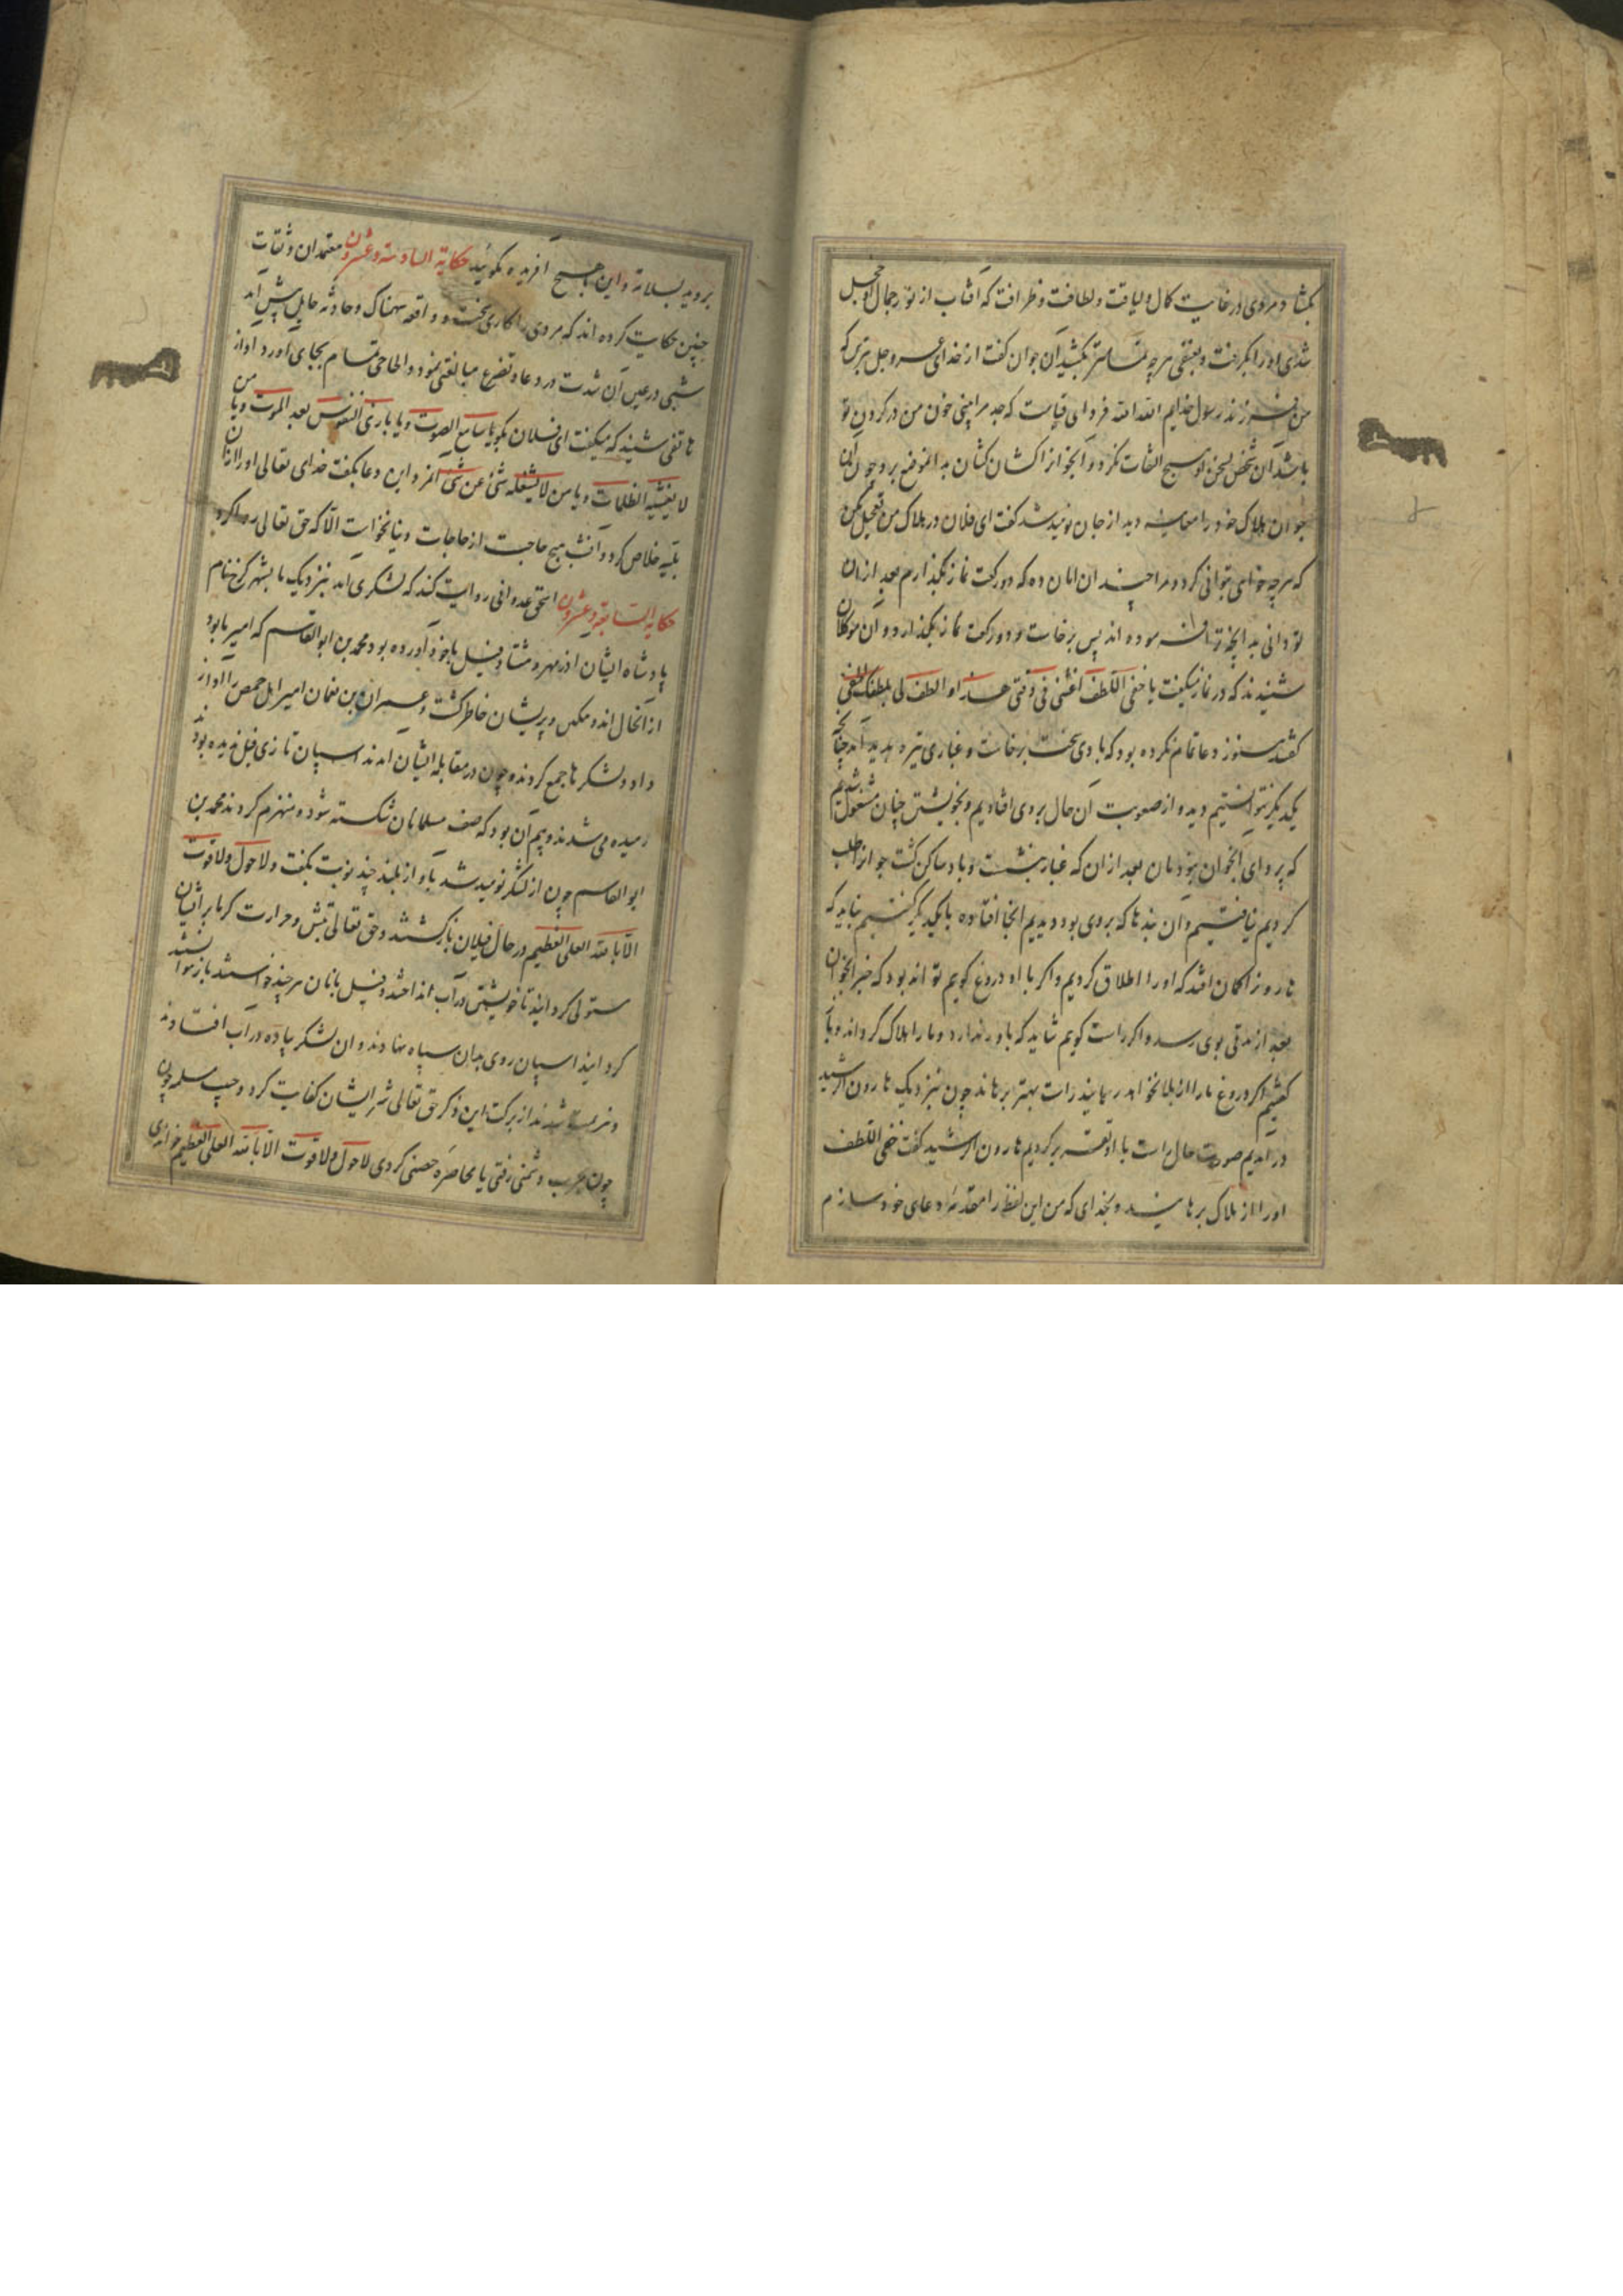 بکشاد مردی در غایت کمال و لیاقت و لطافت و ظرافت که آفتاب از نور جمال او خجل
شدی او را بگرفت و بعنفی هرچه تمامتر بکشید آن جوان گفت از خدای عز و جل بترس که
من فرزند رسول خدایم الله الله فردای قیامت که جد مرا بینی خون من در کردن تو
باشد آن شخص بسخن او هیچ التفات نکرد و آنجوانرا کشان کشان بدانموضع برد چون آن
جوان هلاک خود را معاینه دید از جان نومید شد گفت ای فلان در هلاک من تعجیل مکن
که هرچه خواهی توانی کرد و مرا چندان امان ده که دو رکعت نماز بگذارم بعد ازان
تو دانی بدانچه ترا فرموده اند پس برخاست و دو رکعت نماز بگذارد و آن موکلان
شنیدند که در نماز میگفت یا خفی اللطف اغثنی فی وقتی هذا و الطف لی بلطفک الخفی
گفتند هنوز دعا تمام نکرده بود که بادی سخت برخاست و غباری تیره پدید آمد چنانچه
یکدیگر نتوانستیم دید و از صعوبت آن حال بروی افتادیم و بخویشتن چنان مشغول شدیم
که پروای آنجوان نبودمان بعد ازان که غبار بنشست و باد ساکن گشت جوانرا طلب
کردیم نیافتیم و آن بندها که بروی بود دیدیم آنجا افتاده با یکدیگر گفتیم نباید که
هارونرا گمان افتد که او را اطلاق کردیم و اگر با او دروغ گویم تواند بود که خبر آنجوان
بعد از مدتی بوی رسد و اگر راست گویم شاید که باور ندارد و ما را هلاک گرداند و با
گفتیم اگر دروغ ما را از بلا نخواهد رهانید راست بهتر برهاند چون نزدیک هارون الرشید
در آمدیم صورت حال راست با او تقریر کردیم هارون الرشید گفت خفی اللطف
او را از هلاک برهانید و بخدای که من این لفظ را مقدمه دعای خود سازم
بروید بسلامة و این بهیچ آفریده مگوئید حکایة السادسة و عشرون معتمدان و ثقات
چنین حکایت کرده اند که مردی را کاری سخت و واقعه سهمناک و حادثه هایل پیش آمد
شبی در عین آن شدت در دعا و تضرع مبالغتی نمود و الحاحی تمام بجای آورد آواز
هاتفی شنید که میگفت ای فلان بگو یا سامع الصوت و یا باری النفوس بعد الموت و یا من
لا یغشیه الظلمات و یا من لا یشغله شئ عن شئ آنمرد این دعا بگفت خدای تعالی او را ازان
بلیه خلاص کرد و آنشب هیچ حاجت از حاجات دنیا نخواست الا که حق تعالی روا کرد
حکایة السابعة و عشرون اسحق عدوانی روایت کند که لشکری آمد نزدیک ما بشهر کرخ نام
پادشاه ایشان اذرمهر و هشتاد فیل با خود آورده بود محمد بن ابو القاسم که امیر ما بود
از آنحال اندوهگین و پریشان خاطر گشت و عمران بن نعمان امیر اهل حمص را آواز
داد و لشکرها جمع کردند و چون در مقابله ایشان آمدند اسپان تازی فیل ندیده بودند
رمیده می شدند و بیم آن بود که صف مسلمانان شکسته شود و منهزم کردند محمد بن
ابو القاسم چون از لشکر نومید شد بآواز بلند چند نوبت بگفت و لا حول و لا قوت
الا بالله العلی العظیم در حال فیلان بازگشتند و حق تعالی تپش و حرارت گرما بر ایشان
مستولی گردانید تا خویشتن در آب انداختند و فیل بانان هرچند خواستند باز نتوانستند
گردانید اسپان روی بدان سپاه نهادند و آن لشکر پیاده در آب افتادند
و شدند از برکت این ذکر حق تعالی شر ایشان کفایت کرد و حبیب مسلمه چون
چون بحرب دشمنی رفتی یا محاصره حصنی کردی لا حول و لا قوت الا بالله العلی العظیم خواندی